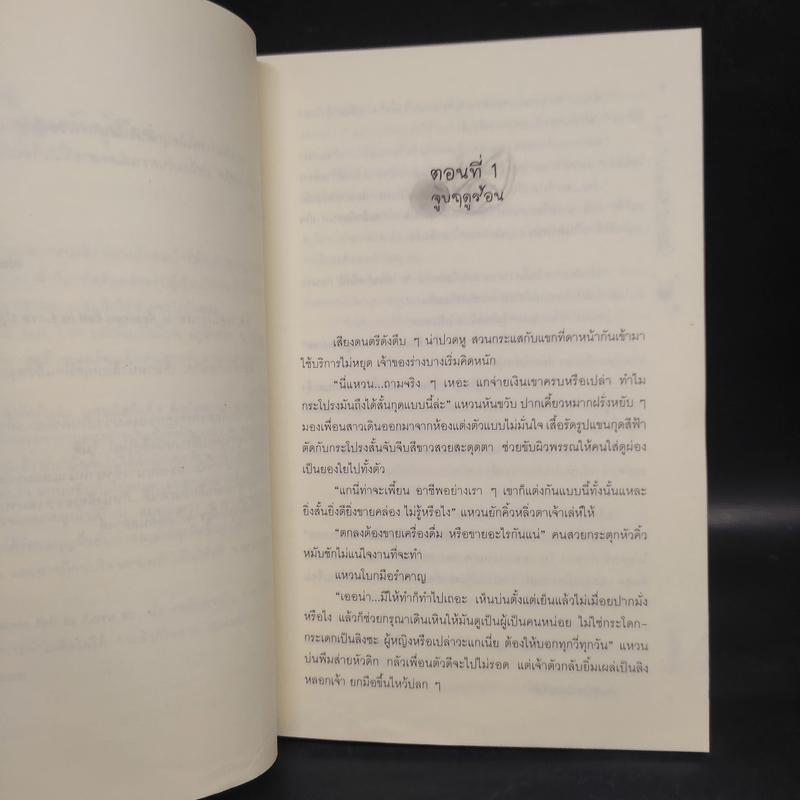 ตอนที่ 1
จูบฤดูร้อน
เสียงดนตรีดังตึบ ๆ น่าปวดหู สวนกระแสกับแขกที่ดาหน้ากันเข้ามา
ใช้บริการไม่หยุด เจ้าของร่างบางเริ่มคิดหนัก
“นี่แหวน...ถามจริง ๆ เหอะ แกจ่ายเงินเขาครบหรือเปล่า ทำไม
กระโปรงมันถึงได้สั้นกุดแบบนี้ล่ะ” แหวนหันขวับ ปากเคี้ยวหมากฝรั่งหยับ ๆ
มองเพื่อนสาวเดินออกมาจากห้องแต่งตัวแบบไม่มั่นใจ เสื้อรัดรูปแขนกุดสีฟ้า
ตัดกับกระโปรงสั้นจับจีบสีขาวสวยสะดุดตา ช่วยขับผิวพรรณให้คนใส่ดูผ่อง
เป็นยองใยไปทั้งตัว
“แกนี่ท่าจะเพี้ยน อาชีพอย่างเรา ๆ เขาก็แต่งกันแบบนี้ทั้งนั้นแหละ
ยิ่งสั้นยิ่งดียิ่งขายคล่อง ไม่รู้หรือไง” แหวนยักคิ้วหลิ่วตาเจ้าเล่ห์ให้
“ตกลงต้องขายเครื่องดื่ม หรือขายอะไรกันแน่” คนสวยกระตุกหัวคิ้ว
หมับชักไม่แน่ใจงานที่จะทำ
แหวนโบกมือรำคาญ
“เออน่า...มีให้ทำก็ทำไปเถอะ เห็นบ่นตั้งแต่เย็นแล้วไม่เมื่อยปากมั่ง
หรือไง แล้วก็ช่วยกรุณาเดินเหินให้มันดูเป็นผู้เป็นคนหน่อย ไม่ใช่กระโดก-
กระเดกเป็นลิงซะ ผู้หญิงหรือเปล่าวะแกเนี่ย ต้องให้บอกทุกวี่ทุกวัน” แหวน
บ่นพึมส่ายหัวดิก กลัวเพื่อนตัวดีจะไปไม่รอด แต่เจ้าตัวกลับยิ้มเผล่เป็นลิง
หลอกเจ้า ยกมือขึ้นไหว้ปลก ๆ